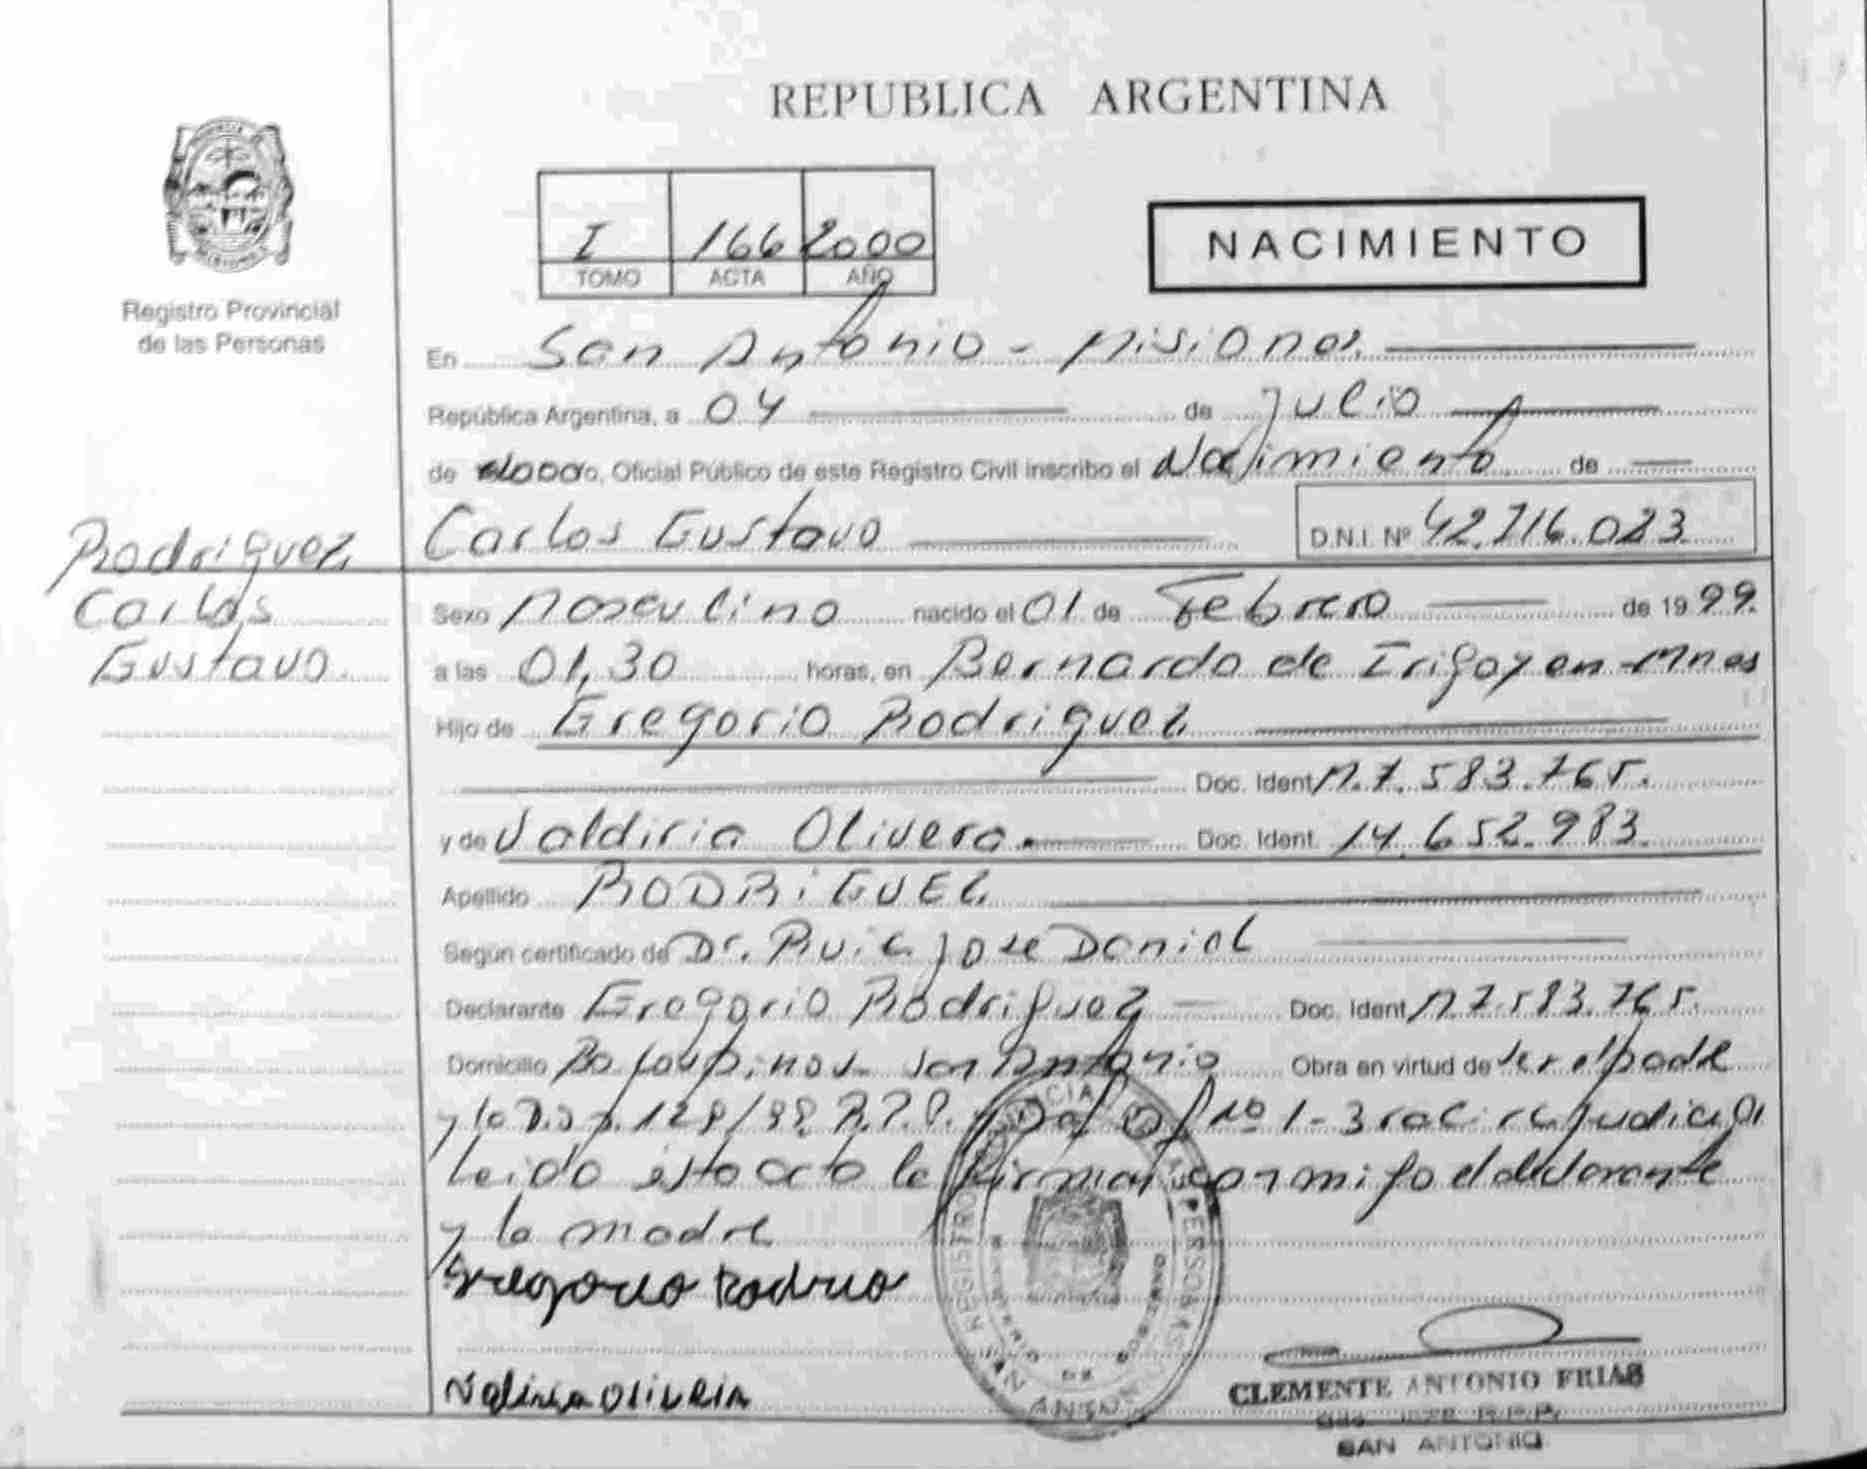 REPUBLICA ARGENTINA
I 166 2000
TOMO ACTA AÑO
NACIMIENTO
Registro Provincial
de las Personas
En San Antonio - Misiones
República Argentina, a 04 de julio
de o, Oficial Público de este Registro Civil inscribo el Nacimiento de
Carlos Gustavo D.N.I. Nº 42.716.023
Rodriguez
Carlos
Gustavo.
Sexo Masculino nacido el 01 de Febrero de 1999.
a las 01,30 horas, en Bernardo de Irigoyen - Mnes
Hijo de Gregorio Rodriguez
Doc. Ident M.7.583.765.
y de Valdiria Olivera. Doc. Ident. 14.652.983.
Apellido RODRiGUEZ
Según certificado de Dr. Ruiz Jose Daniel
Declarante Gregorio Rodriguez Doc. Ident M 7.583.765.
Domicilio San Antonio Obra en virtud de ser el padre
y la 128/98. R.P.P. Nº 1-3
Leido esta acta la firman conmigo el declarante
y la madre
Gregorio
REGISTRO PROVINCIA DE LAS PERSONAS
CLEMENTE ANTONIO FRIAS
R.P.P.
SAN ANTONIO